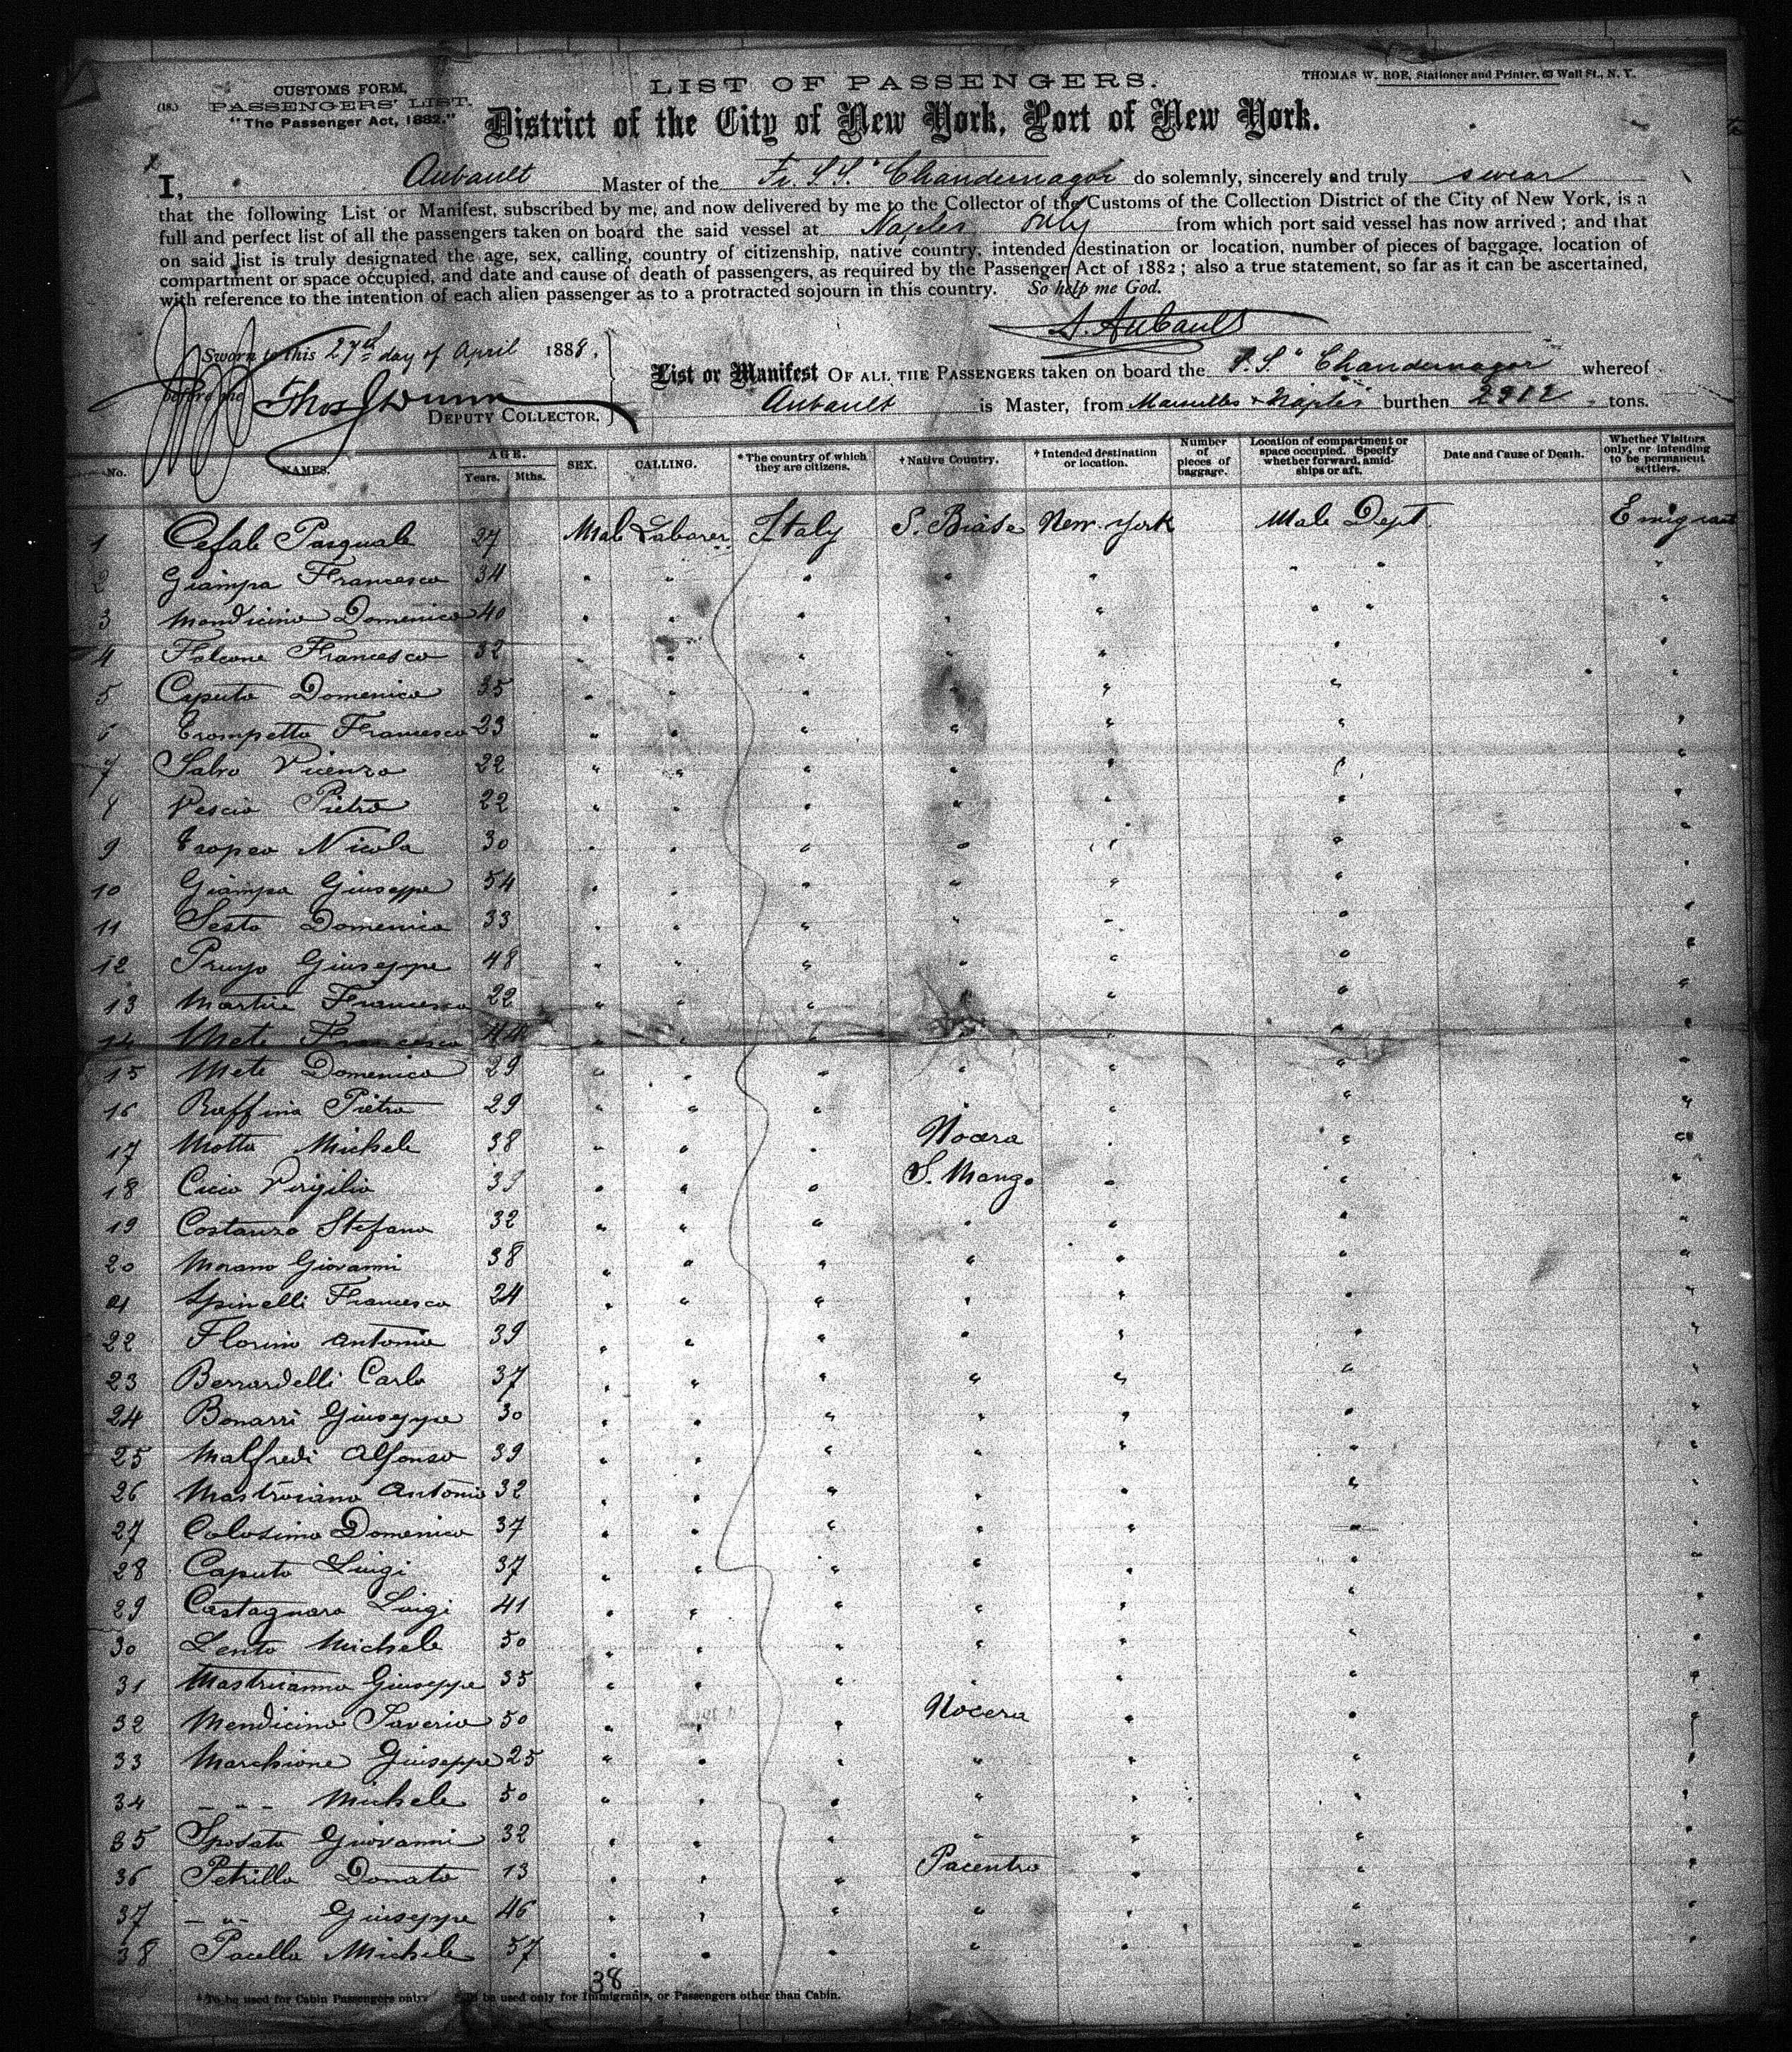 CUSTOMS FORM,
(18.) PASSENGERS' LIST.
"The Passenger Act, 1882."
LIST OF PASSENGERS.
THOMAS W. ROE, Stationer and Printer, 63 Wall St., N. Y.
District of the City of New York, Port of New York.
I, Aubault Master of the Fr. S.S. "Chandernagor do solemnly, sincerely and truly swear
that the following List or Manifest, subscribed by me, and now delivered by me to the Collector of the Customs of the Collection District of the City of New York, is a
full and perfect list of all the passengers taken on board the said vessel at Naples only from which port said vessel has now arrived; and that
on said list is truly designated the age, sex, calling, country of citizenship, native country, intended destination or location, number of pieces of baggage, location of
compartment or space occupied, and date and cause of death of passengers, as required by the Passenger Act of 1882; also a true statement, so far as it can be ascertained,
with reference to the intention of each alien passenger as to a protracted sojourn in this country. So help me God.
A. Aubault
Sworn to this 27th day of April 1888.
before me Thos J Dunn
DEPUTY COLLECTOR.
List or Manifest OF ALL THE PASSENGERS taken on board the S.S. "Chandernagor whereof
Aubault is Master, from Marseilles & Naples burthen 2912 tons.
No. NAMES. AGE. Years. Mths. SEX. CALLING. *The country of which they are citizens. †Native Country. †Intended destination or location. Number of pieces of baggage. Location of compartment or space occupied. Specify whether forward, amidships or aft. Date and Cause of Death. Whether Visitors only, or intending to be permanent settlers.
1 Cefale Pasquale 27 Male Laborer Italy S. Biase New-York Male Dept Emigrant
2 Giampa Francesco 34 " " " " " " " "
3 Mendicino Domenico 40 " " " " " " " "
4 Falcone Francesco 32 " " " " " " "
5 Caputo Domenico 35 " " " " " " "
6 Trompetto Francesco 23 " " " " " " "
7 Salvo Vicenzo 22 " " " " " " "
8 Vescio Pietro 22 " " " " " " "
9 Tropeo Nicola 30 " " " " " " "
10 Giampa Giuseppe 54 " " " " " " "
11 Sesto Domenico 33 " " " " " " "
12 Giuseppe 48 " " " " " " "
13 Martire Francesco 22 " " " " " " "
14 Mete Francesco 44 " " " " " " "
15 Mete Domenico 29 " " " " " " "
16 Ruffino Pietro 29 " " " " " " "
17 Motta Michele 38 " " " Nocera " " "
18 Cicio Virgilio " " " S. Mango " " "
19 Costanzo Stefano 32 " " " " " " "
20 Morano Giovanni 38 " " " " " " "
21 Spinelli Francesco 24 " " " " " " "
22 Florino Antonio 39 " " " " " " "
23 Berrardelli Carlo 37 " " " " " " "
24 Bonarri Giuseppe 30 " " " " " " "
25 Malfredi Alfonso 39 " " " " " " "
26 Mastroiano Antonio 32 " " " " " " "
27 Colosimo Domenico 37 " " " " " " "
28 Caputo Luigi 37 " " " " " " "
29 Castagnaro Luigi 41 " " " " " " "
30 Lento Michele 50 " " " " " " "
31 Mastrianno Giuseppe 35 " " " " " " "
32 Mendicino Saverio 50 " " " Nocera " " "
33 Marchione Giuseppe 25 " " " " " " "
34 - " - Michele 50 " " " " " " "
35 Sposato Giovanni 32 " " " " " " "
36 Petrillo Donato 13 " " " Pacentro " " "
37 - " - Giuseppe 46 " " " " " " "
38 Pacella Michele 57 " " " " " " "
38
*To be used for Cabin Passengers only. †To be used only for Immigrants, or Passengers other than Cabin.